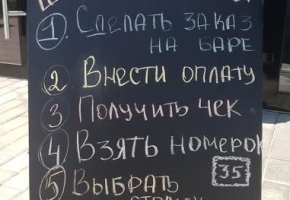 1. Сделать заказ
на баре
2 Внести оплату
3 Получить чек
4 Взять номерок
35
5 Выбрать